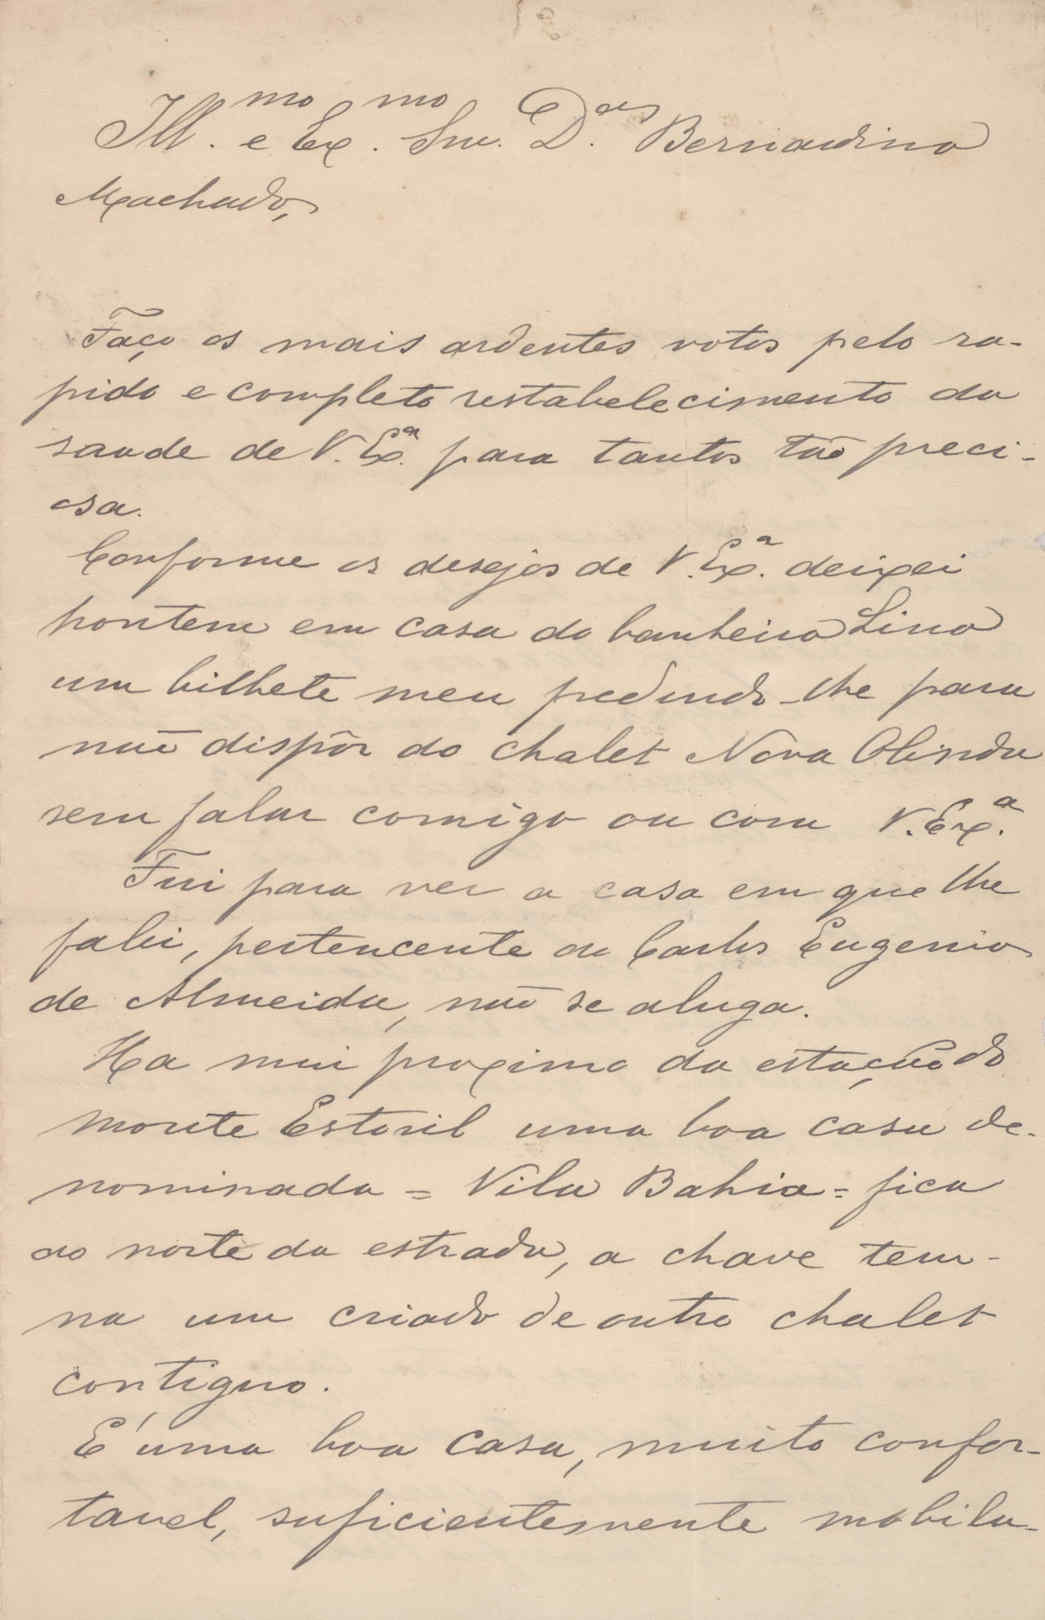 Ill.mo e Ex.mo Snr. D.or Bernardino
Machado,
Faço os mais ardentes votos pelo ra-
pido e completo restabelecimento da
saude de V. Ex.a para tantos tão preci-
osa.
Conforme os desejos de V. Ex.a deixei
hontem em casa do banheiro Lino
um bilhete meu pedindo-lhe para
não dispôr do chalet Nova Olinda
sem falar comigo ou com V. Ex.a
Fui para ver a casa em que lhe
falei, pertencente a Carlos Eugenio
de Almeida, não se aluga.
Ha mui proximo da estação do
Monte Estoril uma boa casa de-
nominada = Vila Bahia = fica
ao norte da estrada, a chave tem-
na um criado de outro chalet
contiguo.
E' uma boa casa, muito confor-
tavel, suficientemente mobila-